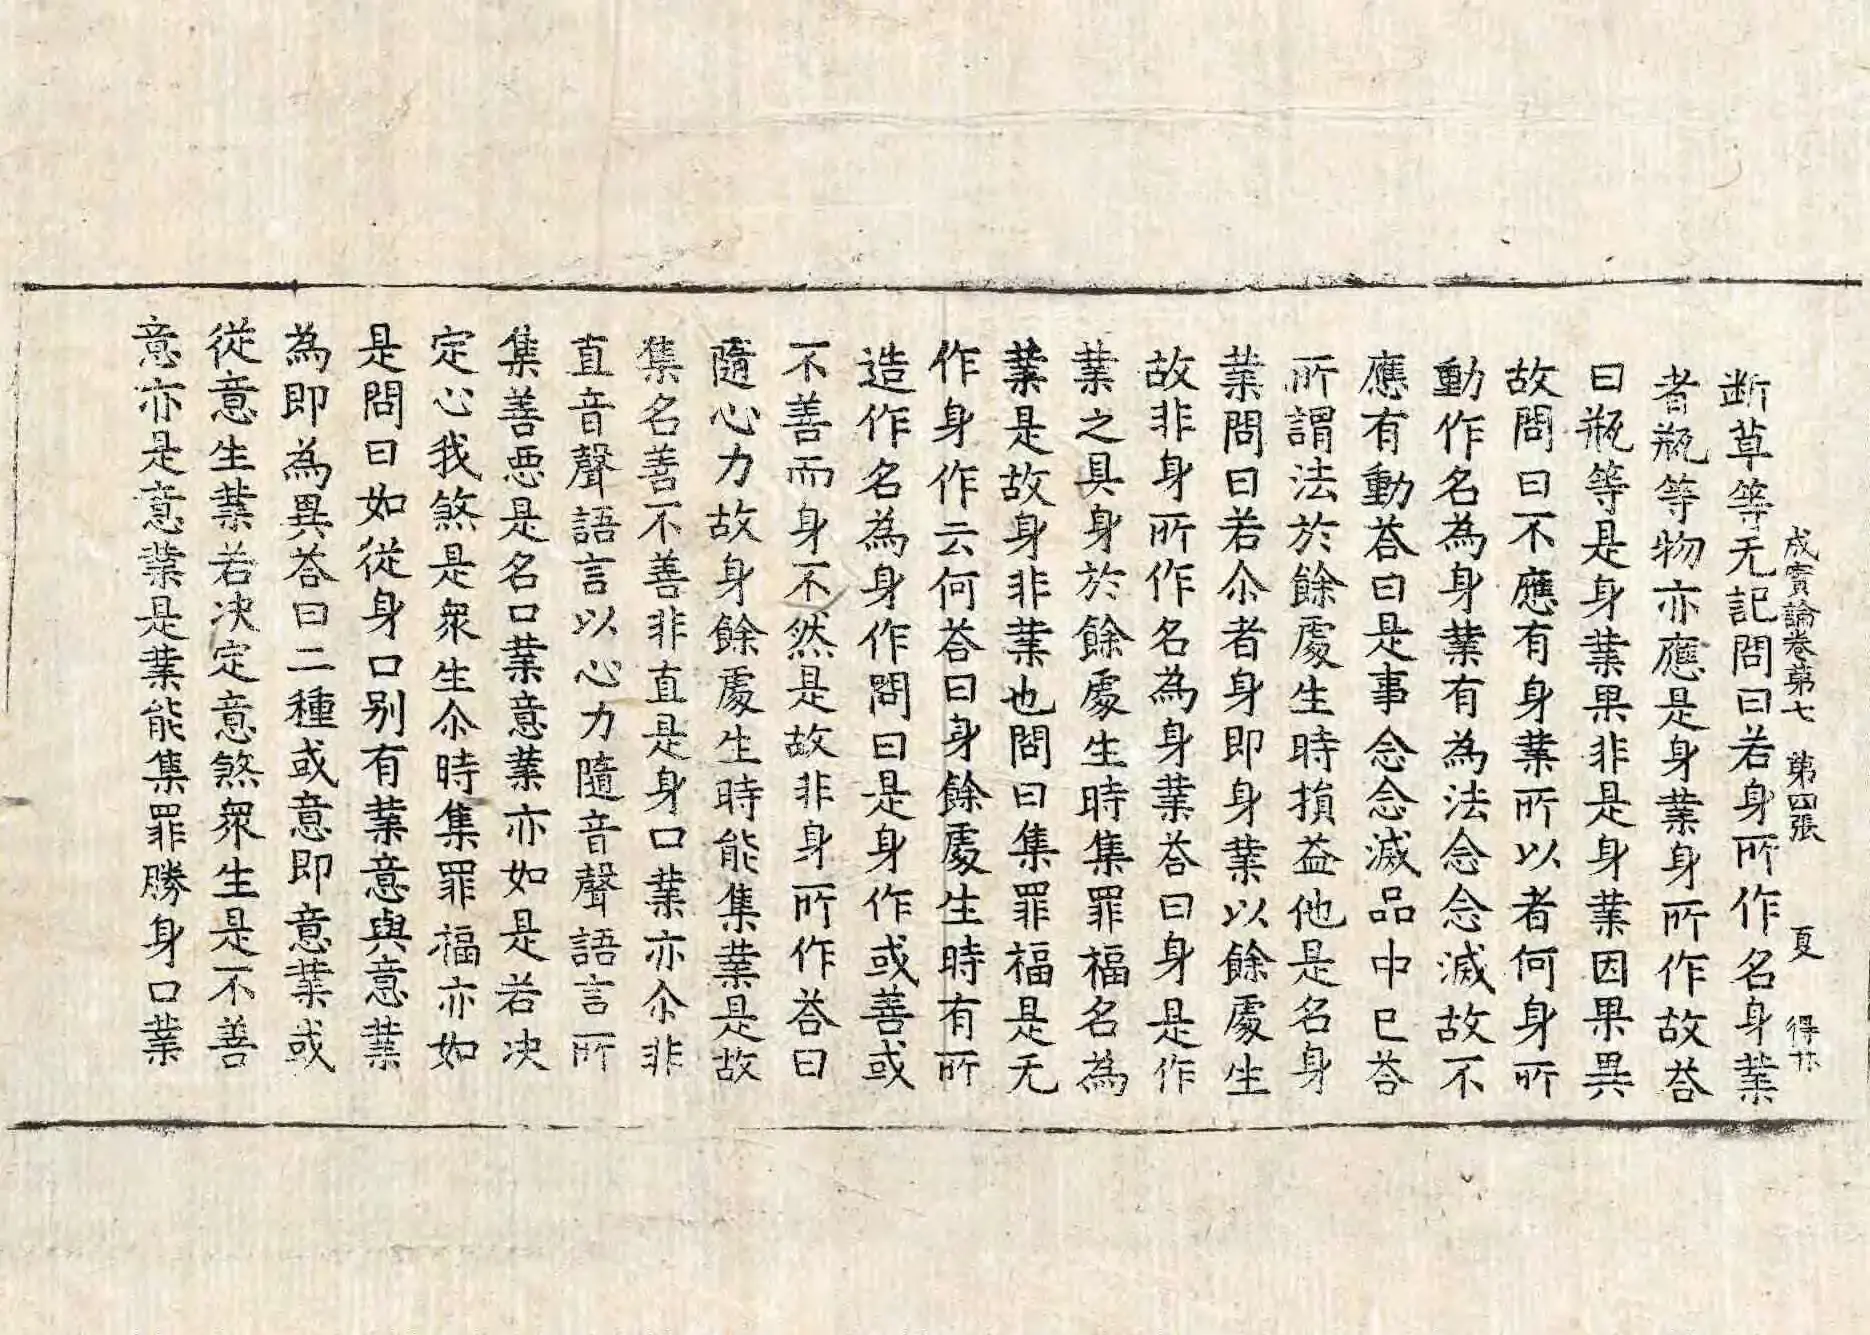 成實論卷第七 第四張 夏 得林
斷草等无記問曰若身所作名身業
者瓶等物亦應是身業身所作故荅
曰瓶等是身業果非是身業因果異
故問曰不應有身業所以者何身所
動作名為身業有為法念念滅故不
應有動荅曰是事念念滅品中已荅
所謂法於餘處生時損益他是名身
業問曰若尒者身即身業以餘處生
故非身所作名為身業荅曰身是作
業之具身於餘處生時集罪福名為
業是故身非業也問曰集罪福是无
作身作云何荅曰身餘處生時有所
造作名為身作問曰是身作或善或
不善而身不然是故非身所作荅曰
隨心力故身餘處生時能集業是故
集名善不善非直是身口業亦尒非
直音聲語言以心力隨音聲語言所
集善惡是名口業意業亦如是若決
定心我煞是衆生尒時集罪福亦如
是問曰如從身口别有業意與意業
為即為異荅曰二種或意即意業或
從意生業若决定意煞衆生是不善
意亦是意業是業能集罪勝身口業